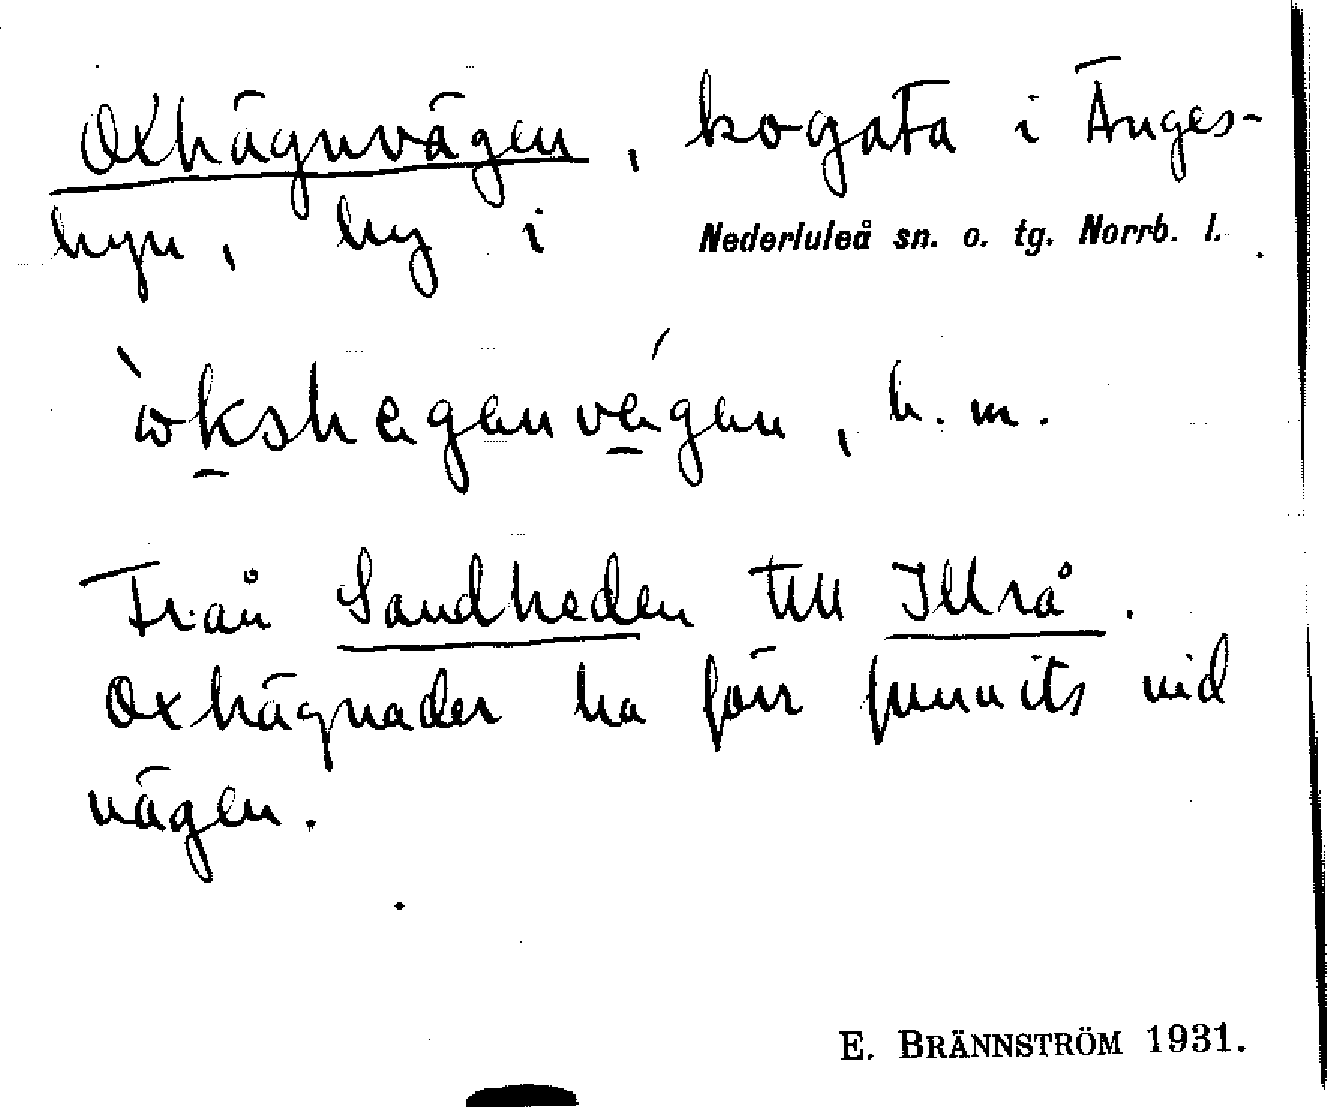 Oxhägnvägen, kogata i Änges-
byn, by i Nederluleå sn. o. tg. Norrb. l.
h. m.
Från Sandheden till Illrå.
Oxhägnader ha förr funnits vid
vägen.
E. BRÄNNSTRÖM 1931.